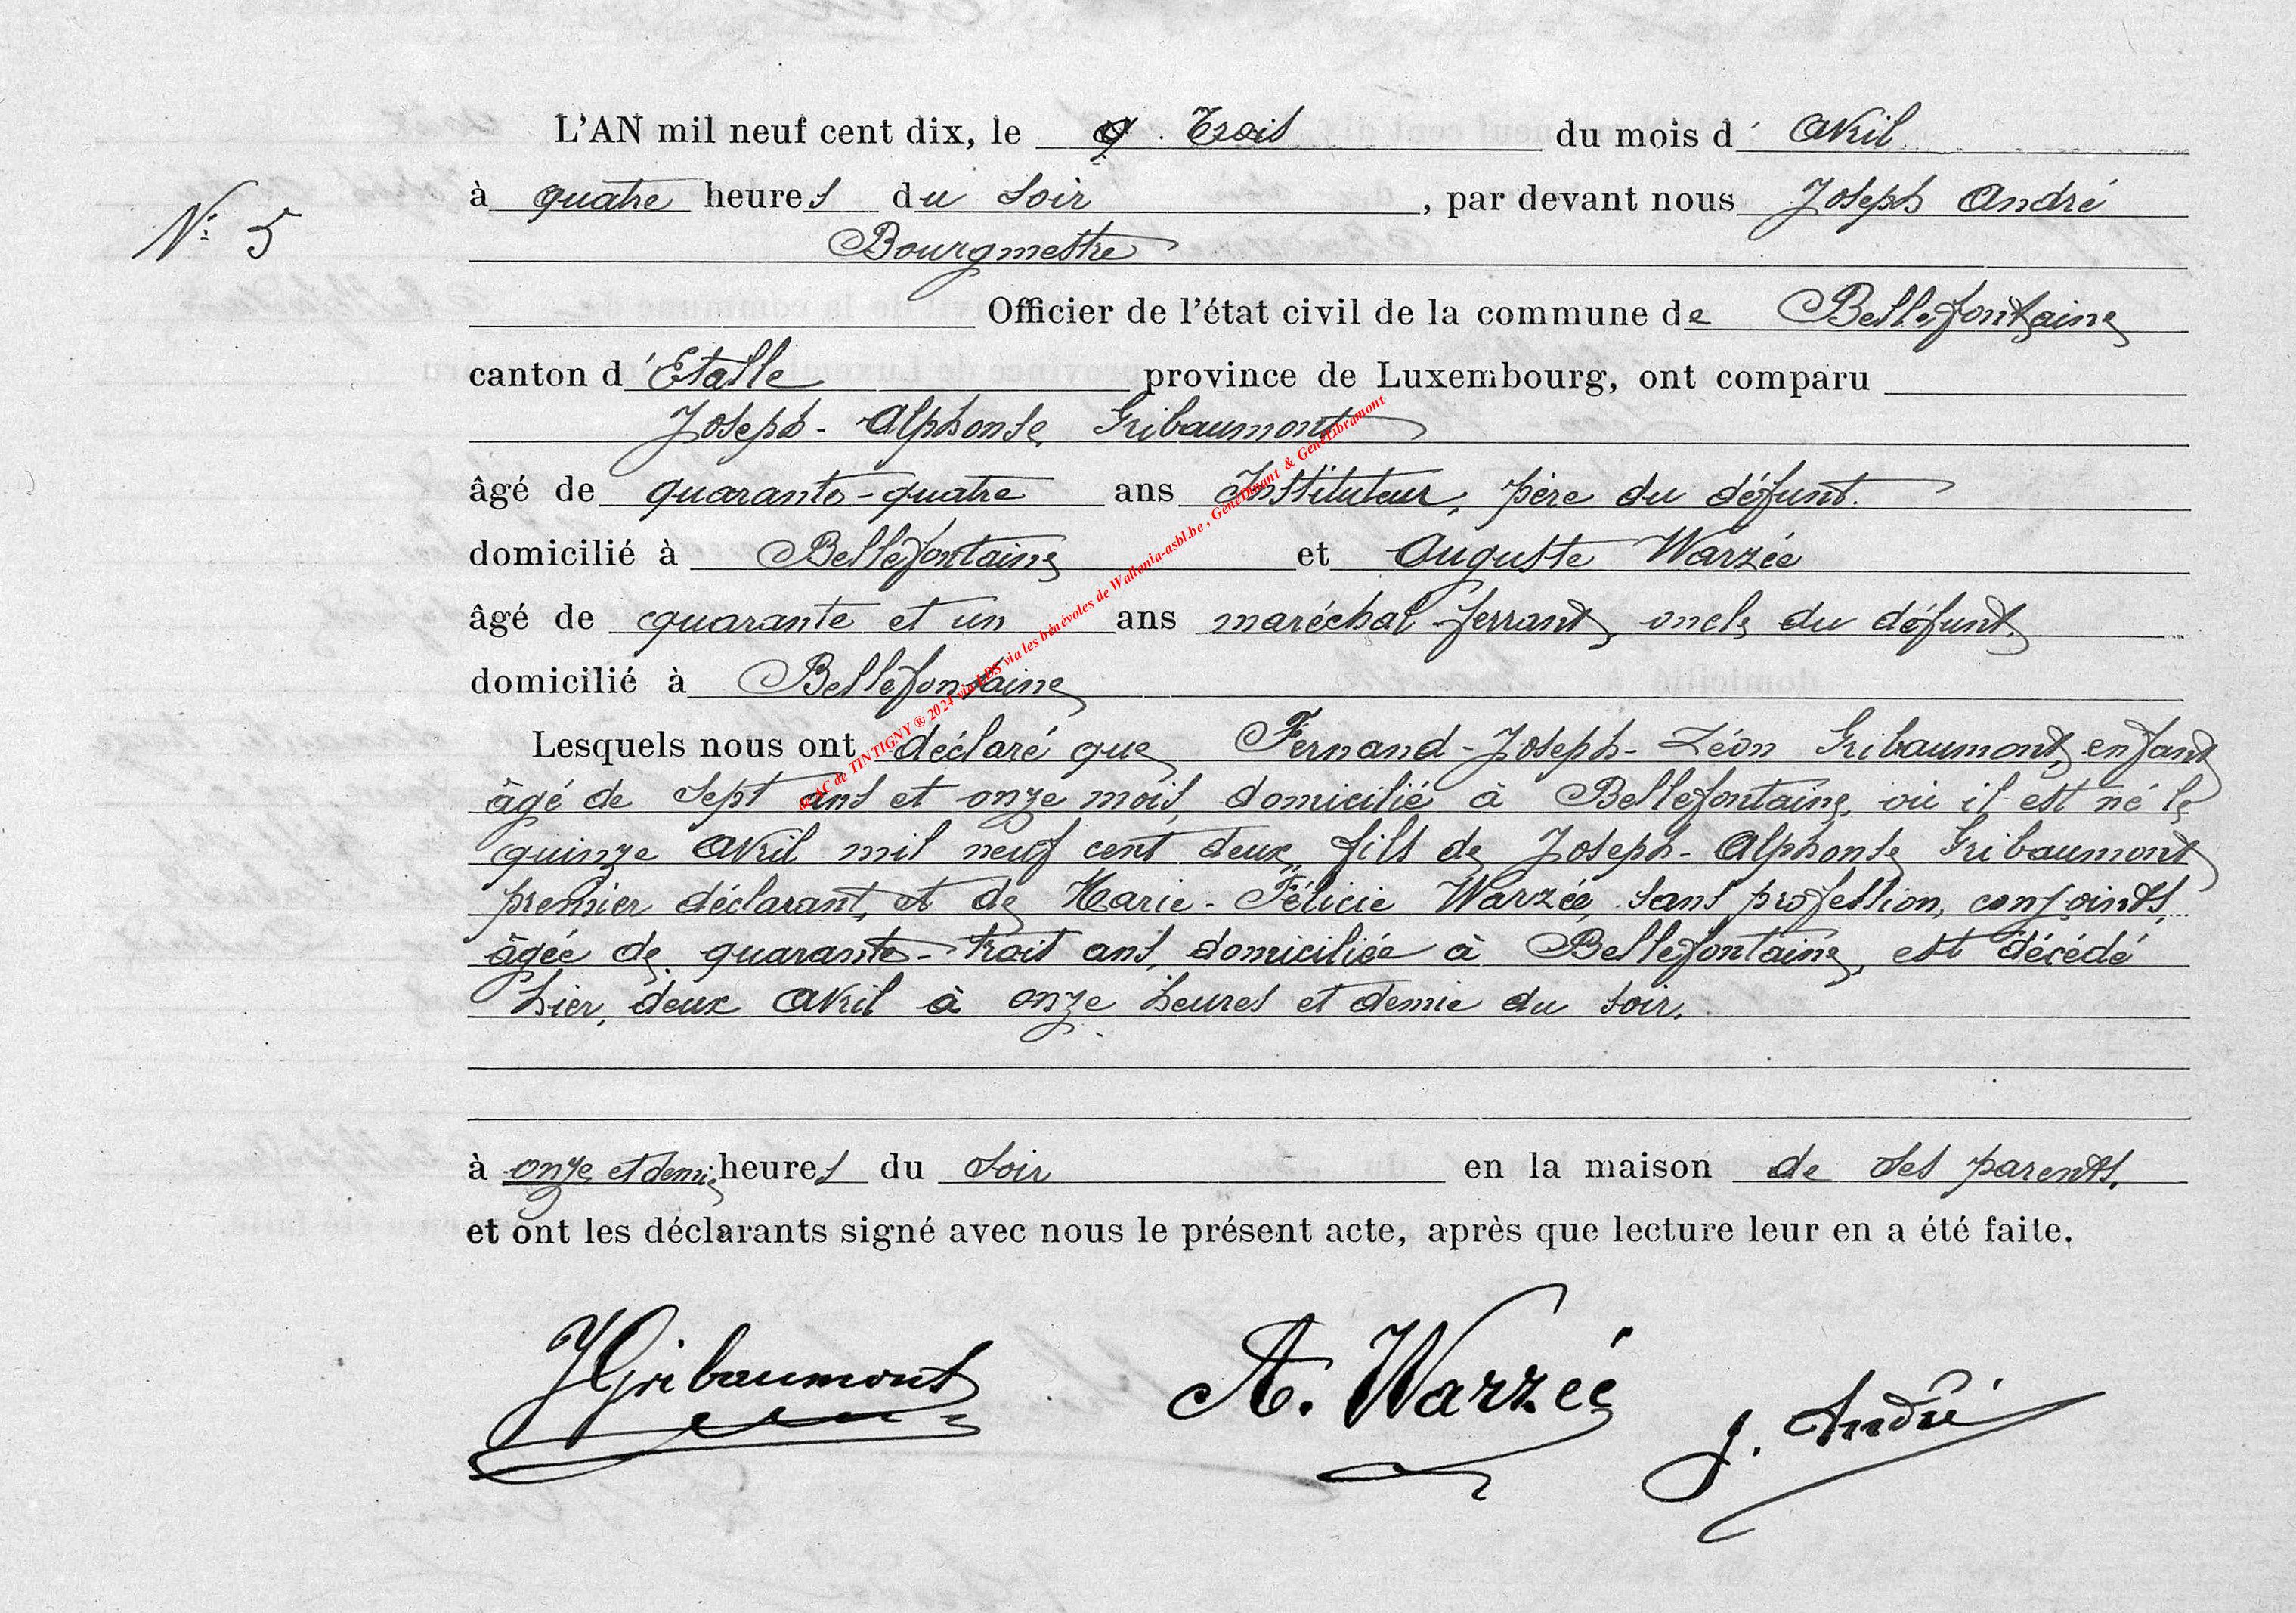 L'AN mil neuf cent dix, le Trois du mois d' Avril
N° 5
à quatre heures du soir, par devant nous Joseph André
Bourgmestre
Officier de l'état civil de la commune de Bellefontaine
canton d' Etalle province de Luxembourg, ont comparu
Joseph-Alphonse Gribaumont
âgé de quarante-quatre ans Instituteur, père du défunt.
domicilié à Bellefontaine et Auguste Warzée
âgé de quarante et un ans maréchal-ferrant, oncle du défunt,
domicilié à Bellefontaine
Lesquels nous ont déclaré que Fernand-Joseph-Léon Gribaumont, enfant
âgé de sept ans et onze mois, domicilié à Bellefontaine, où il est né le
quinze avril mil neuf cent deux, fils de Joseph-Alphonse Gribaumont
premier déclarant, et de Marie-Félicie Warzée, sans profession, conjoints,
âgée de quarante-trois ans, domiciliée à Bellefontaine, est décédé
hier, deux avril à onze heures et demie du soir.
à onze et demie heures du soir en la maison de ses parents.
et ont les déclarants signé avec nous le présent acte, après que lecture leur en a été faite.
JGribaumont A. Warzée J. André
AC de TINTIGNY ® 2024 via LDS via les bénévoles de Wallonia-asbl.be, GénéDinant & GénéLibramont